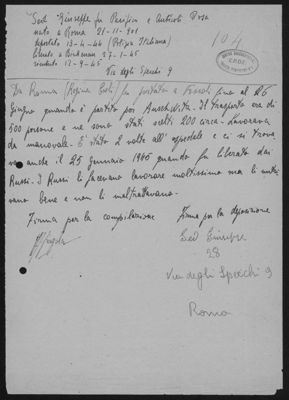 Sed Giuseppe fu Pacifico e Anticoli Rosa
nato a Roma 21-11-901
deportato 13-4-44 (Polizia Italiana)
liberato a Birkenau 27-1-45
rientrato 12-9-45
Via degli Specchi 9
104
C.R.D.E.
Da Roma (Regina Coeli) fu portato a Fossoli fino al 26
Giugno quando è partito per Auschwitz. Il trasporto era di
500 persone e ne sono stati scelti 200 circa. Lavorava
da manovale. È stato 2 volte all'ospedale e ci si trova
va anche il 25 Gennaio 1945 quando fu liberato dai
Russi. I Russi li facevano lavorare moltissimo ma li nutri
vano bene e non li maltrattavano.
Firma per la compilazione
Firma per la deposizione
Sed Giuseppe
28
Via degli Specchi 9
Roma